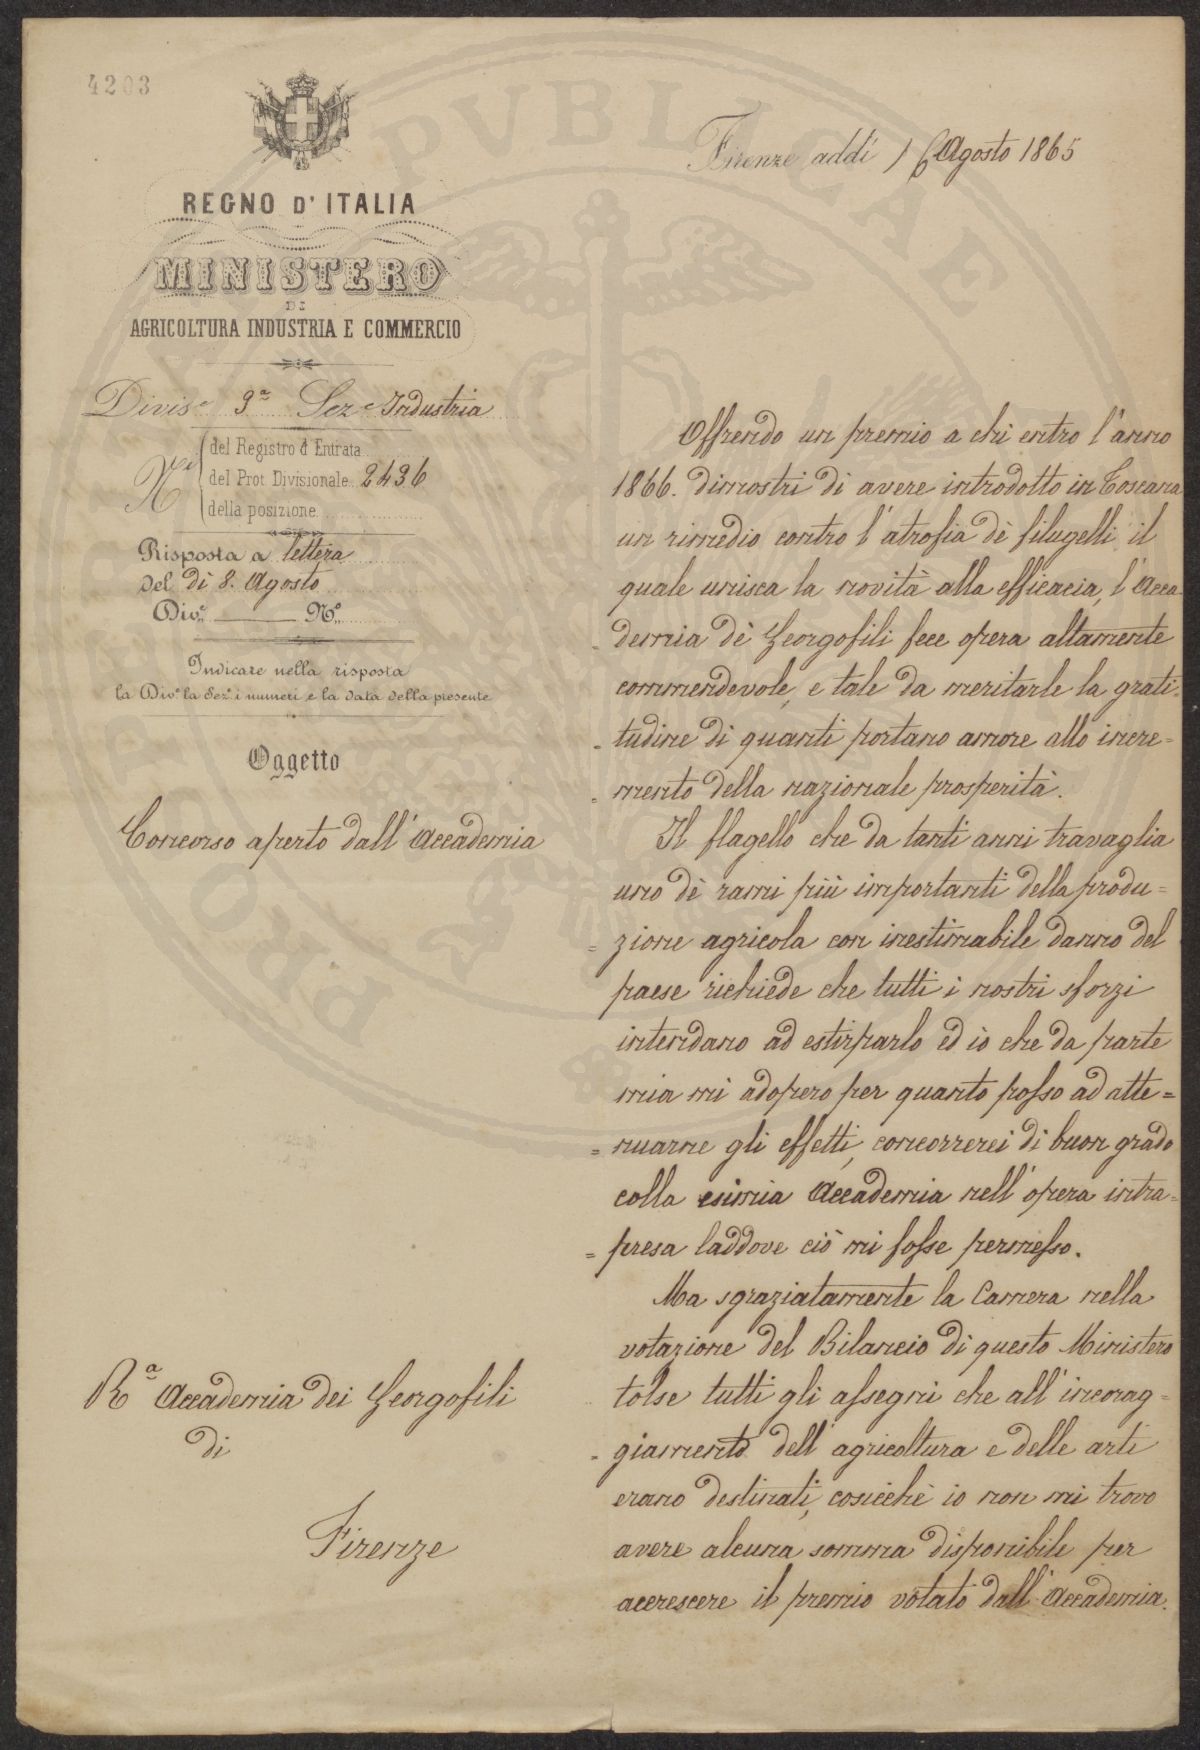 4203
Firenze addì 16 Agosto 1865
REGNO D'ITALIA
MINISTERO
DI
AGRICOLTURA INDUSTRIA E COMMERCIO
Divis.e 3.a Sez.e Industria
N.i
del Registro d'Entrata
del Prot. Divisionale 2436
della posizione
Risposta a lettera
del dì 8. Agosto
Div.e N.o
Indicare nella risposta
la Div.e la Sez.e i numeri e la data della presente
Oggetto
Concorso aperto dall'Accademia
R.a Accademia dei Georgofili
di
Firenze
Offrendo un premio a chi entro l'anno
1866. dimostri di avere introdotto in Toscana
un rimedio contro l'atrofia dè filugelli il
quale unisca la novità alla efficacia, l'Acca
=demia dè Georgofili fece opera altamente
commendevole, e tale da meritarle la grati=
=tudine di quanti portano amore allo incre=
=mento della nazionale prosperità.
Il flagello che da tanti anni travaglia
uno dè rami più importanti della produ=
=zione agricola con inestimabile danno del
paese richiede che tutti i nostri sforzi
intendano ad estirparlo ed io che da parte
mia mi adopero per quanto posso ad atte=
=nuarne gli effetti, concorrerei di buon grado
colla esimia Accademia nell'opera intra=
=presa laddove ciò mi fosse permesso.
Ma sgraziatamente la Camera nella
votazione del Bilancio di questo Ministero
tolse tutti gli assegni che all'incorag=
=giamento dell'agricoltura e delle arti
erano destinati, cosicchè io non mi trovo
avere alcuna somma disponibile per
accrescere il premio votato dall'Accademia.